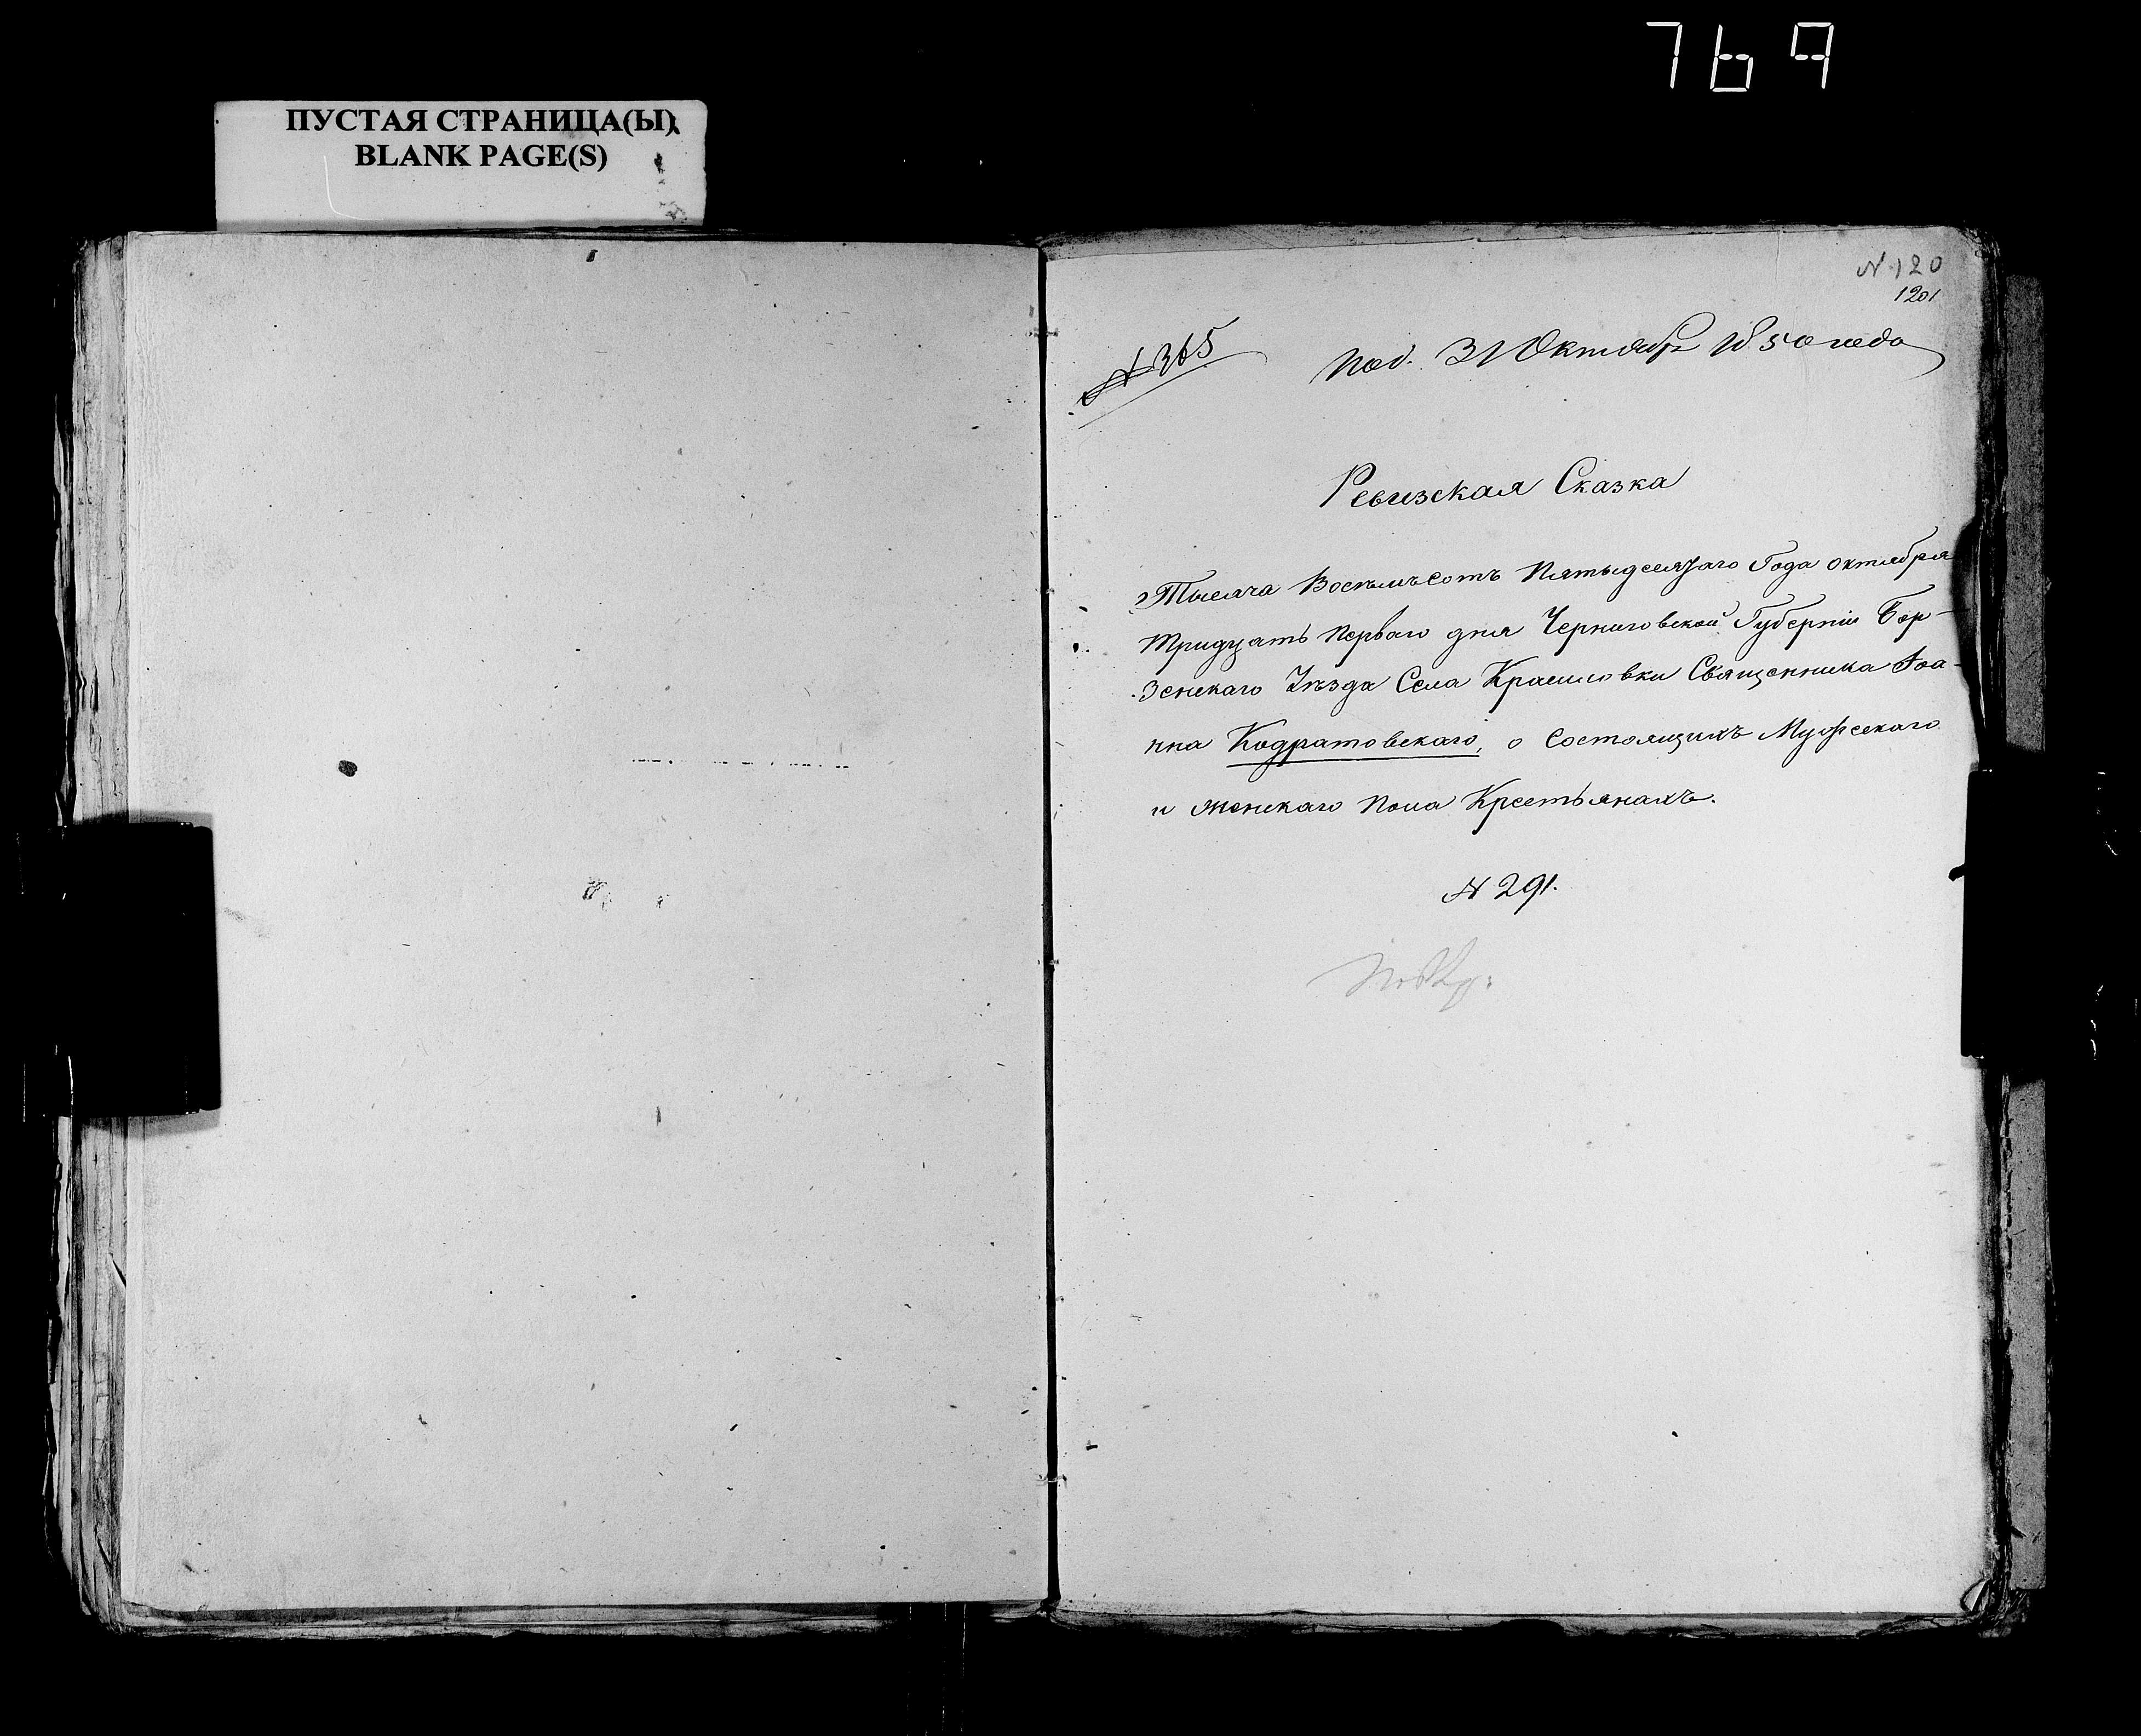 769
ПУСТАЯ СТРАНИЦА(Ы)
BLANK PAGE(S)
N 120
1201
N 365
Под. 31 Октября 1850 года
Ревизская Сказка
Тысяча Восемьсотъ Пятыдесятаго Года октября
тридцать Перваго дня Черниговской Губерніи Бор-
зенскаго Уѣзда Села Красиловки Священника Іоа-
нна Кодратовскаго, о состоящихъ Мужескаго
и женскаго Пола Крестьянахъ.
N 291.